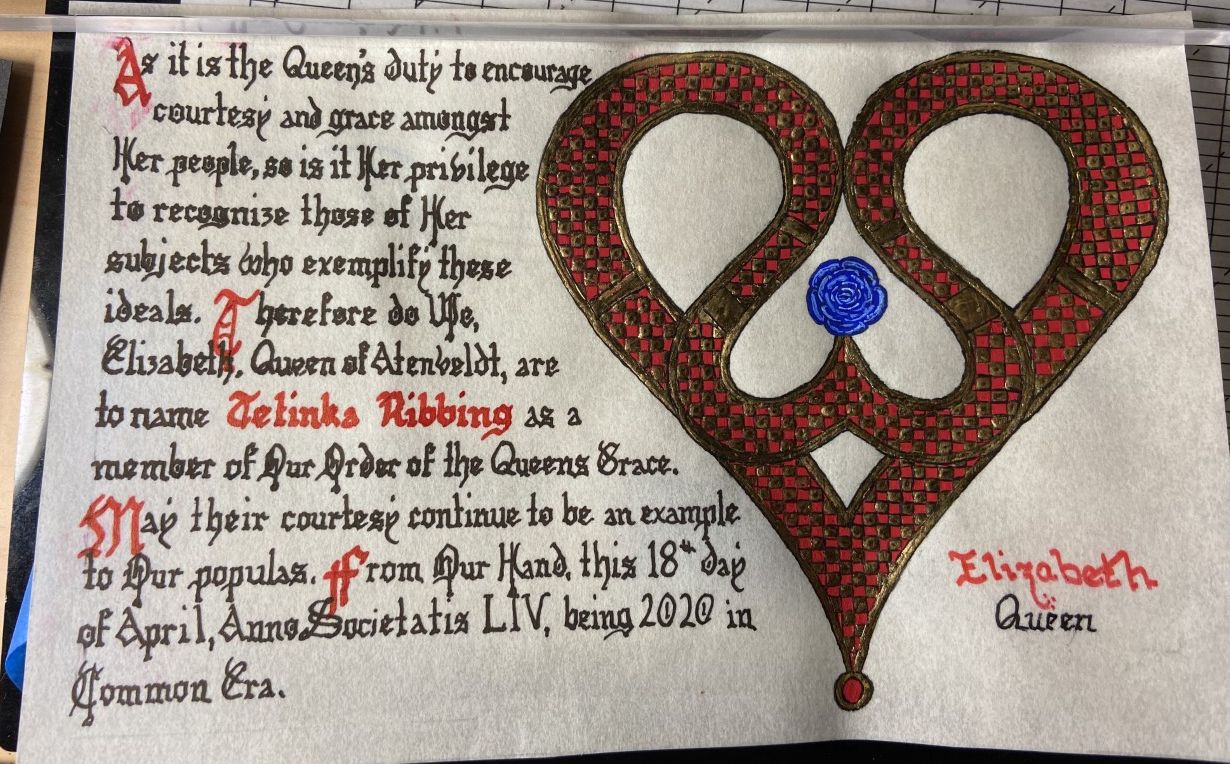 As it is the Queen's duty to encourage
courtesy and grace amongst
Her people, so is it Her privilege
to recognize those of Her
subjects who exemplify these
ideals. Therefore do We,
Elizabeth, Queen of Atenveldt, are
to name Jelinka Ribbing as a
member of Our Order of the Queens Grace.
May their courtesy continue to be an example
to Our populas. From Our Hand, this 18th day
of April, Anno Societatis LIV, being 2020 in
Common Era.
Elizabeth
Queen